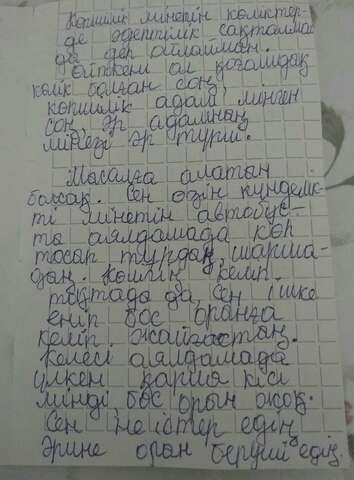 Көпшілік мінетін көліктер-
де әдептілік сақталма
да деп ойлаймын.
Өйткені ол қоғамдық
көлік болған соң,
көпшілік адам мінген
соң, әр адамның
мінезі әр түрлі.
Мысалға алатын
болсақ. Сен өзің күнделік-
ті мінетін автобус-
ты аялдамада көп
тосып тұрдың, шарша-
дың. Көлігің келіп
тоқтады да, сен ішке
еніп бос орынға
келіп жайғастың.
Келесі аялдамада
үлкен қария кісі
мінді бос орын жоқ.
Сен не істер едің
Әрине орын беруші едің.